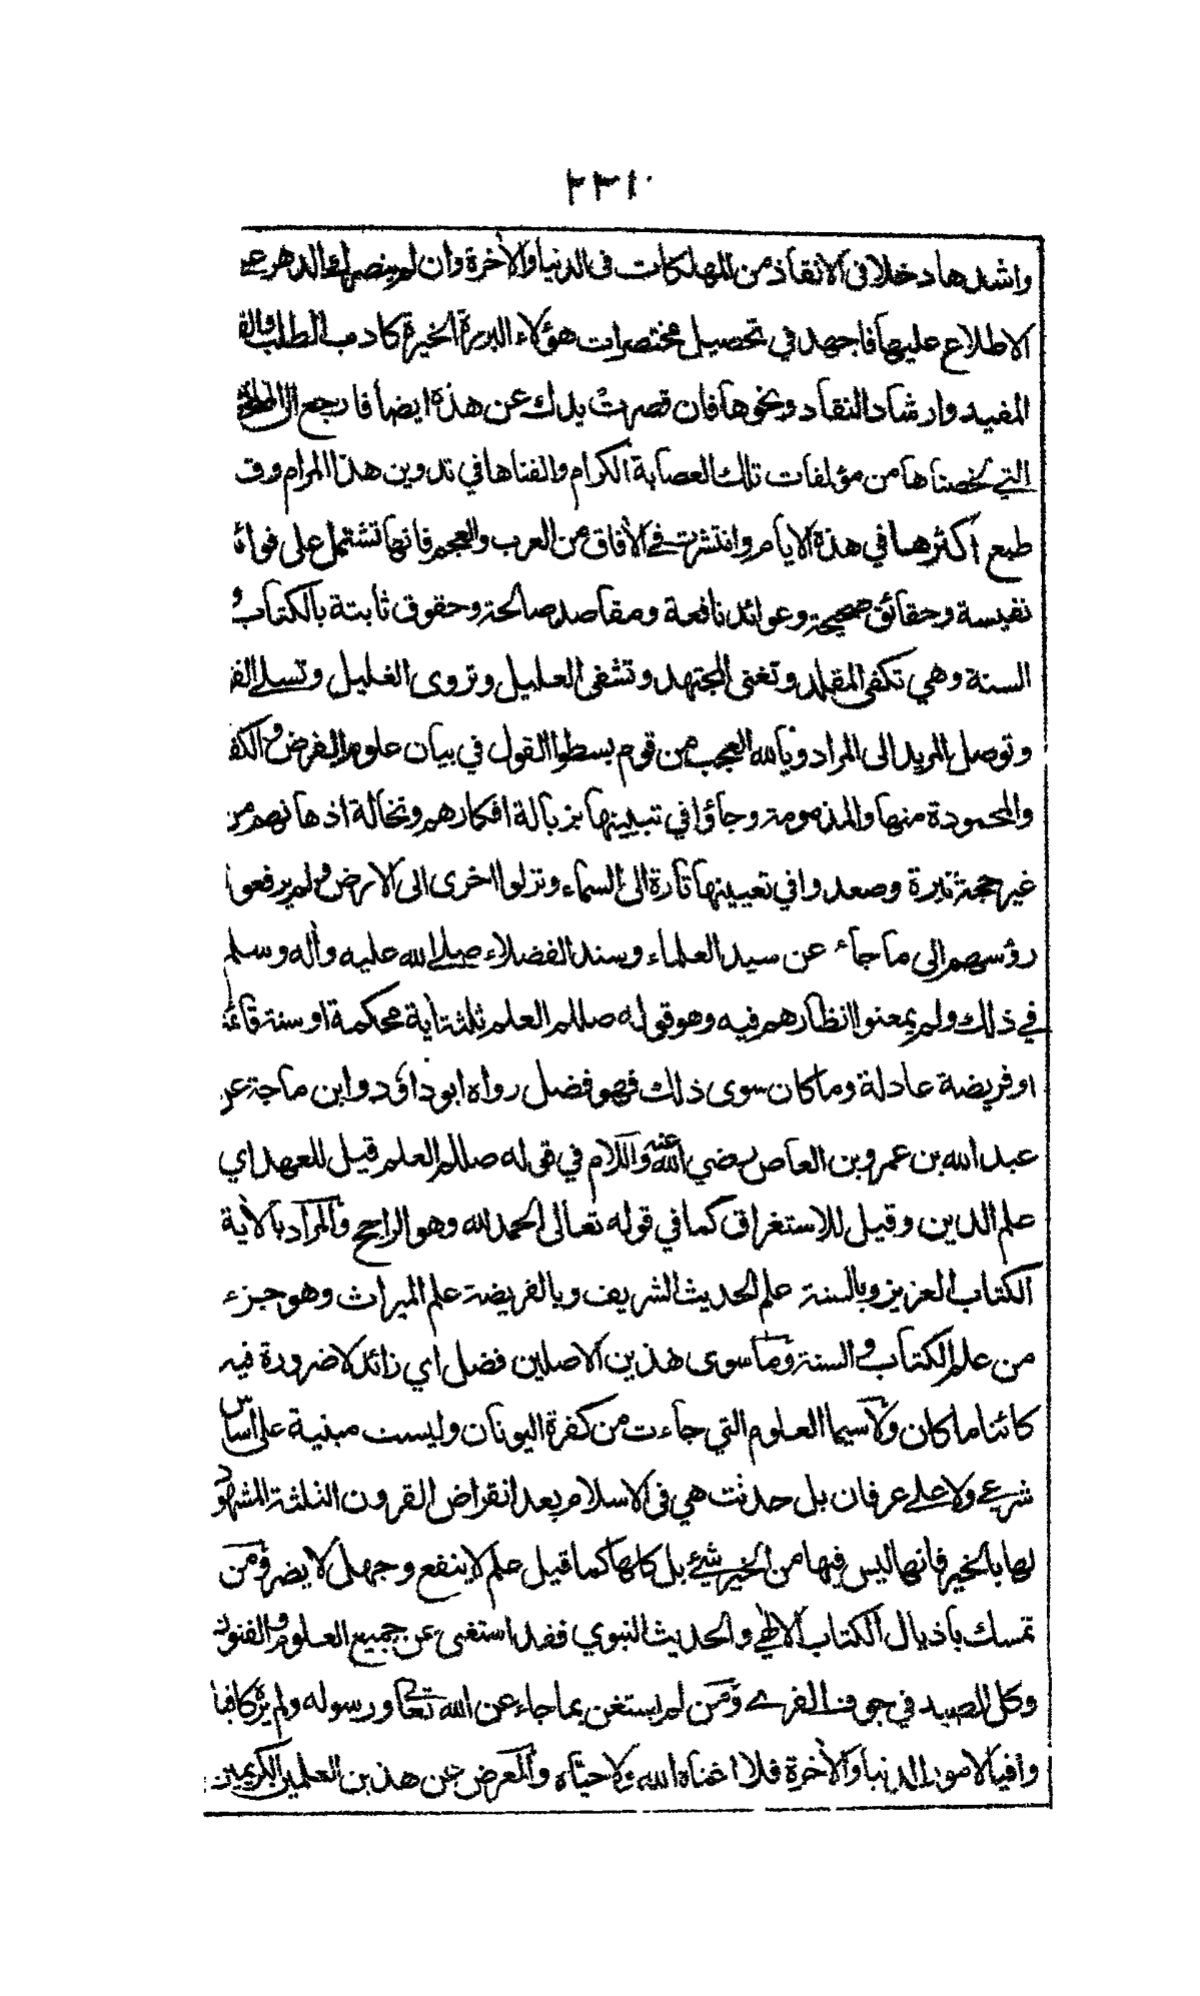 ٢٣١٠
واشدها دخلا في الانقاذ من المهلكات في الدنيا والأخرة وان لم ينصرك الدهر على
الاطلاع عليها فاجهد في تحصيل مختصرات هؤلاء البررة الخيرة كادب الطلب والفتح
المفيد وارشاد النقاد ونحوها فان قصرت يدك عن هذه ايضا فارجع الى
التي لخصناها من مؤلفات تلك العصابة الكرام والفناها في تدوين هذا المرام وق
طبع أكثرها في هذه الايام وانتشرت في الأفاق من العرب والعجم فانها تشتمل على فوائد
نفيسة وحقائق صحيحة وعوائد نافعة ومقاصد صالحة وحقوق ثابتة بالكتاب و
السنة وهي تكفى المقلد وتغنى المجتهد وتشفى العليل وتروى الغليل وتسلے
وتوصل المريد الى المراد ويالله العجب من قوم بسطوا القول في بيان علوم الفرض والكف
والمحمودة منها والمذمومة وجاؤا في تبيينها بزبالة افكارهم ونخالة اذهانهم من
غير حجة نيرة وصعدوا في تعيينها تارة الى السماء ونزلوا اخرى الى الارض ولم يرفعوا
رؤسهم الى ما جاء عن سيد العلماء وسند الفضلاء صلے الله عليه وأله وسلم
في ذلك ولم يمعنوا انظارهم فيه وهو قوله صللم العلم ثلثة أية محكمة او سنة قائمة
او فريضة عادلة وما كان سوى ذلك فهو فضل رواه ابو داؤد وابن ماجة عن
عبد الله بن عمرو بن العاص رضي الله عنه واللام في قوله صللم العلم قيل للعهد اي
علم الدين وقيل للاستغراق كما في قوله تعالى الحمد لله وهو الراجح والمراد بالأية
الكتاب العزيز وبالسنة علم الحديث الشريف وبالفريضة علم الميراث وهو جزء
من علم الكتاب والسنة وما سوى هذين الاصلين فضل اي زائد لا ضرورة فيه
كائنا ما كان ولا سيما العلوم التي جاءت من كفرة اليونان وليست مبنية على اساس
شرعي ولا على عرفان بل حدثت هي في الاسلام بعد انقراض القرون الثلثة المشهود
لها بالخير فانها ليس فيها من الخير شيئ بل كلها كما قيل علم لا ينفع وجهل لا يضر ومن
تمسك بأذيال الكتاب الالٰهي والحديث النبوي فقد استغنى عن جميع العلوم والفنون
وكل الصيد في جوف الفرے ومن لم يستغن بما جاء عن الله تعالى ورسوله ولم يره كافيا
وافيا لامور الدنيا والأخرة فلا اغناه الله ولا حياه والمعرض عن هذين العلمين الكريمين